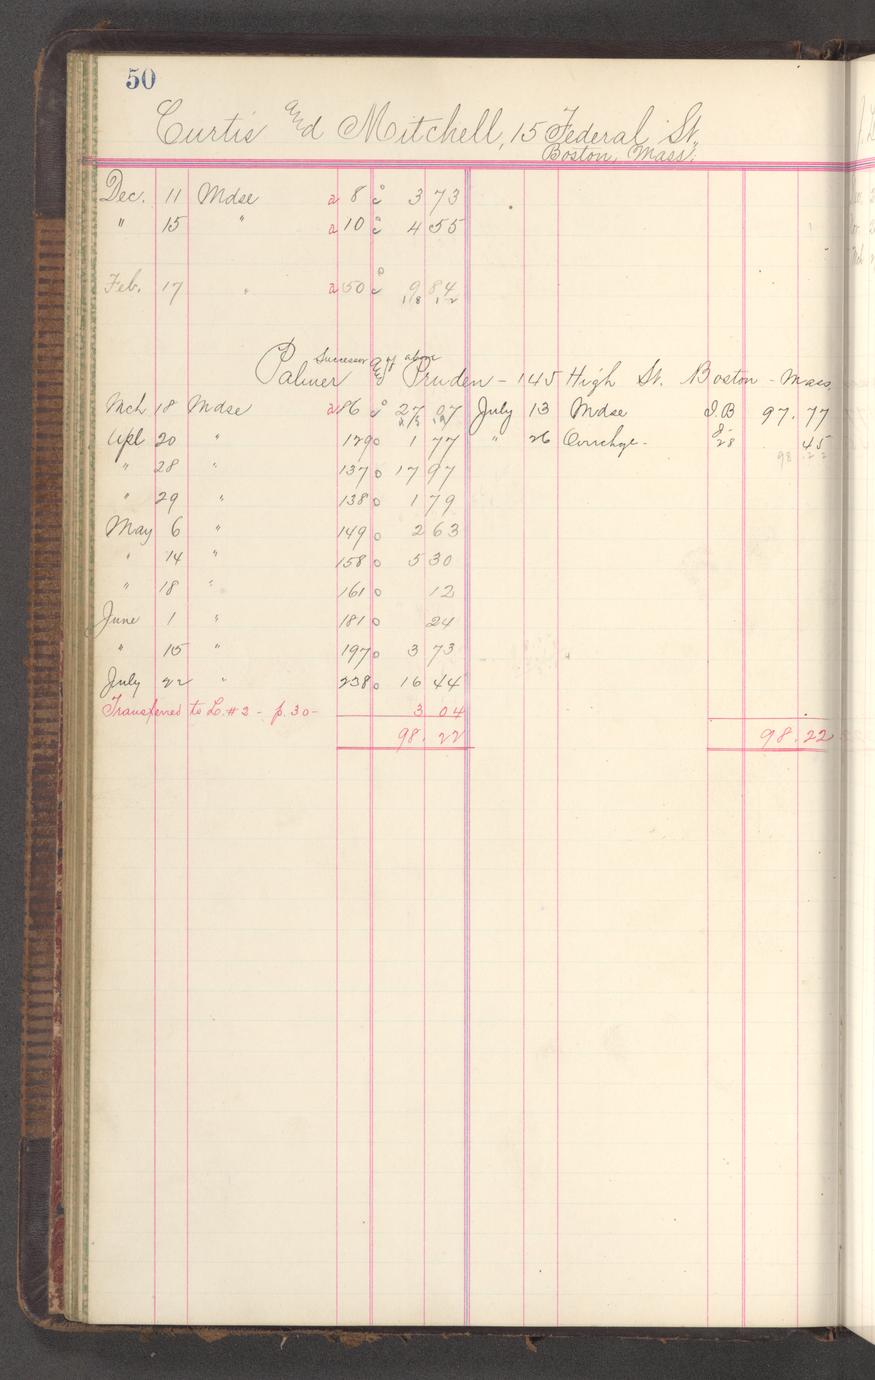 50
Curtis and Mitchell, 15 Federal St.
Boston, Mass.
Dec. 11 Mdse a 8 c 3 73
" 15 " a 10 c 4 55
Feb. 17 " a 50 c 9 84
Successor of above
Palmer and Pruden - 145 High St. Boston - Mass.
Mch 18 Mdse a 86 c 27 07 July 13 Mdse I.B 97.77
Apl 20 " 129 o 1 77 " 26 J. 28 45
" 28 " 137 o 17 97 98.22
" 29 " 138 o 1 79
May 6 " 149 o 2 63
" 14 " 158 o 5 30
" 18 " 161 o 12
June 1 " 181 o 24
" 15 " 197 o 3 73
July 22 " 238 o 16 44
Transferred to L. #2 - p. 30 - 3 04
98.22 98.22